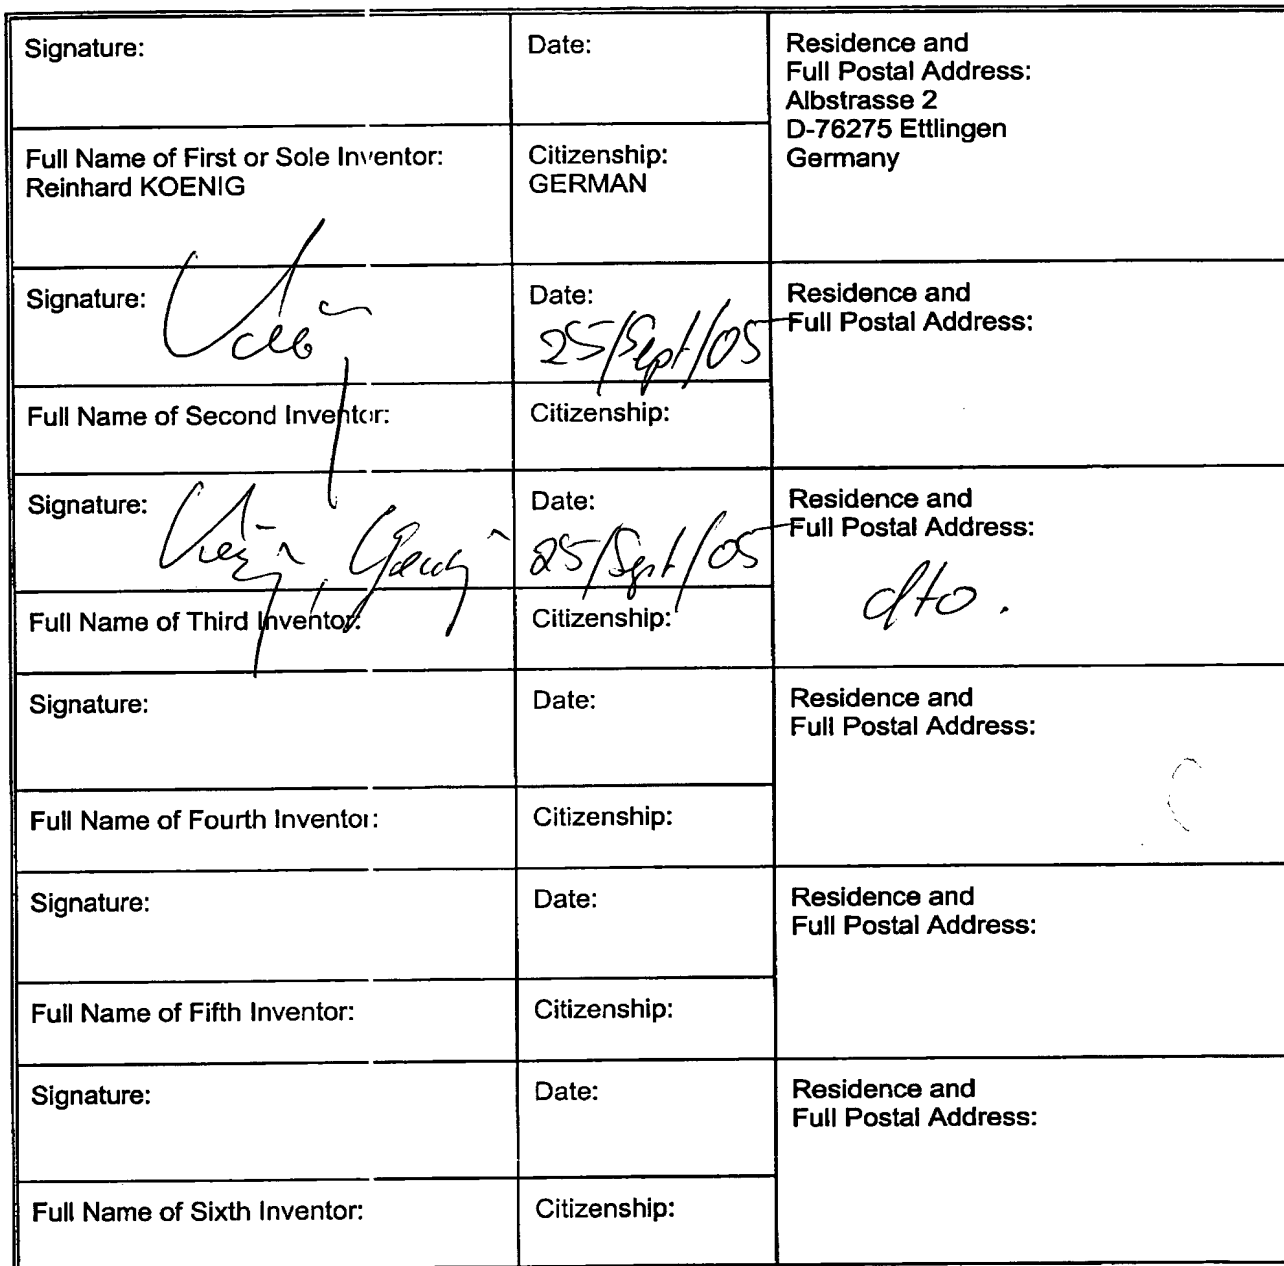 Signature:
Date:
Residence and
Full Postal Address:
Albstrasse 2
D-76275 Ettlingen
Germany
Full Name of First or Sole Inventor:
Reinhard KOENIG
Citizenship:
GERMAN
Signature:
Date:
25/Sept/05
Residence and
Full Postal Address:
Full Name of Second Inventor:
Citizenship:
Signature:
Date:
25/Sept/05
Residence and
Full Postal Address:
dto.
Full Name of Third Inventor:
Citizenship:
Signature:
Date:
Residence and
Full Postal Address:
Full Name of Fourth Inventor:
Citizenship:
Signature:
Date:
Residence and
Full Postal Address:
Full Name of Fifth Inventor:
Citizenship:
Signature:
Date:
Residence and
Full Postal Address:
Full Name of Sixth Inventor:
Citizenship: